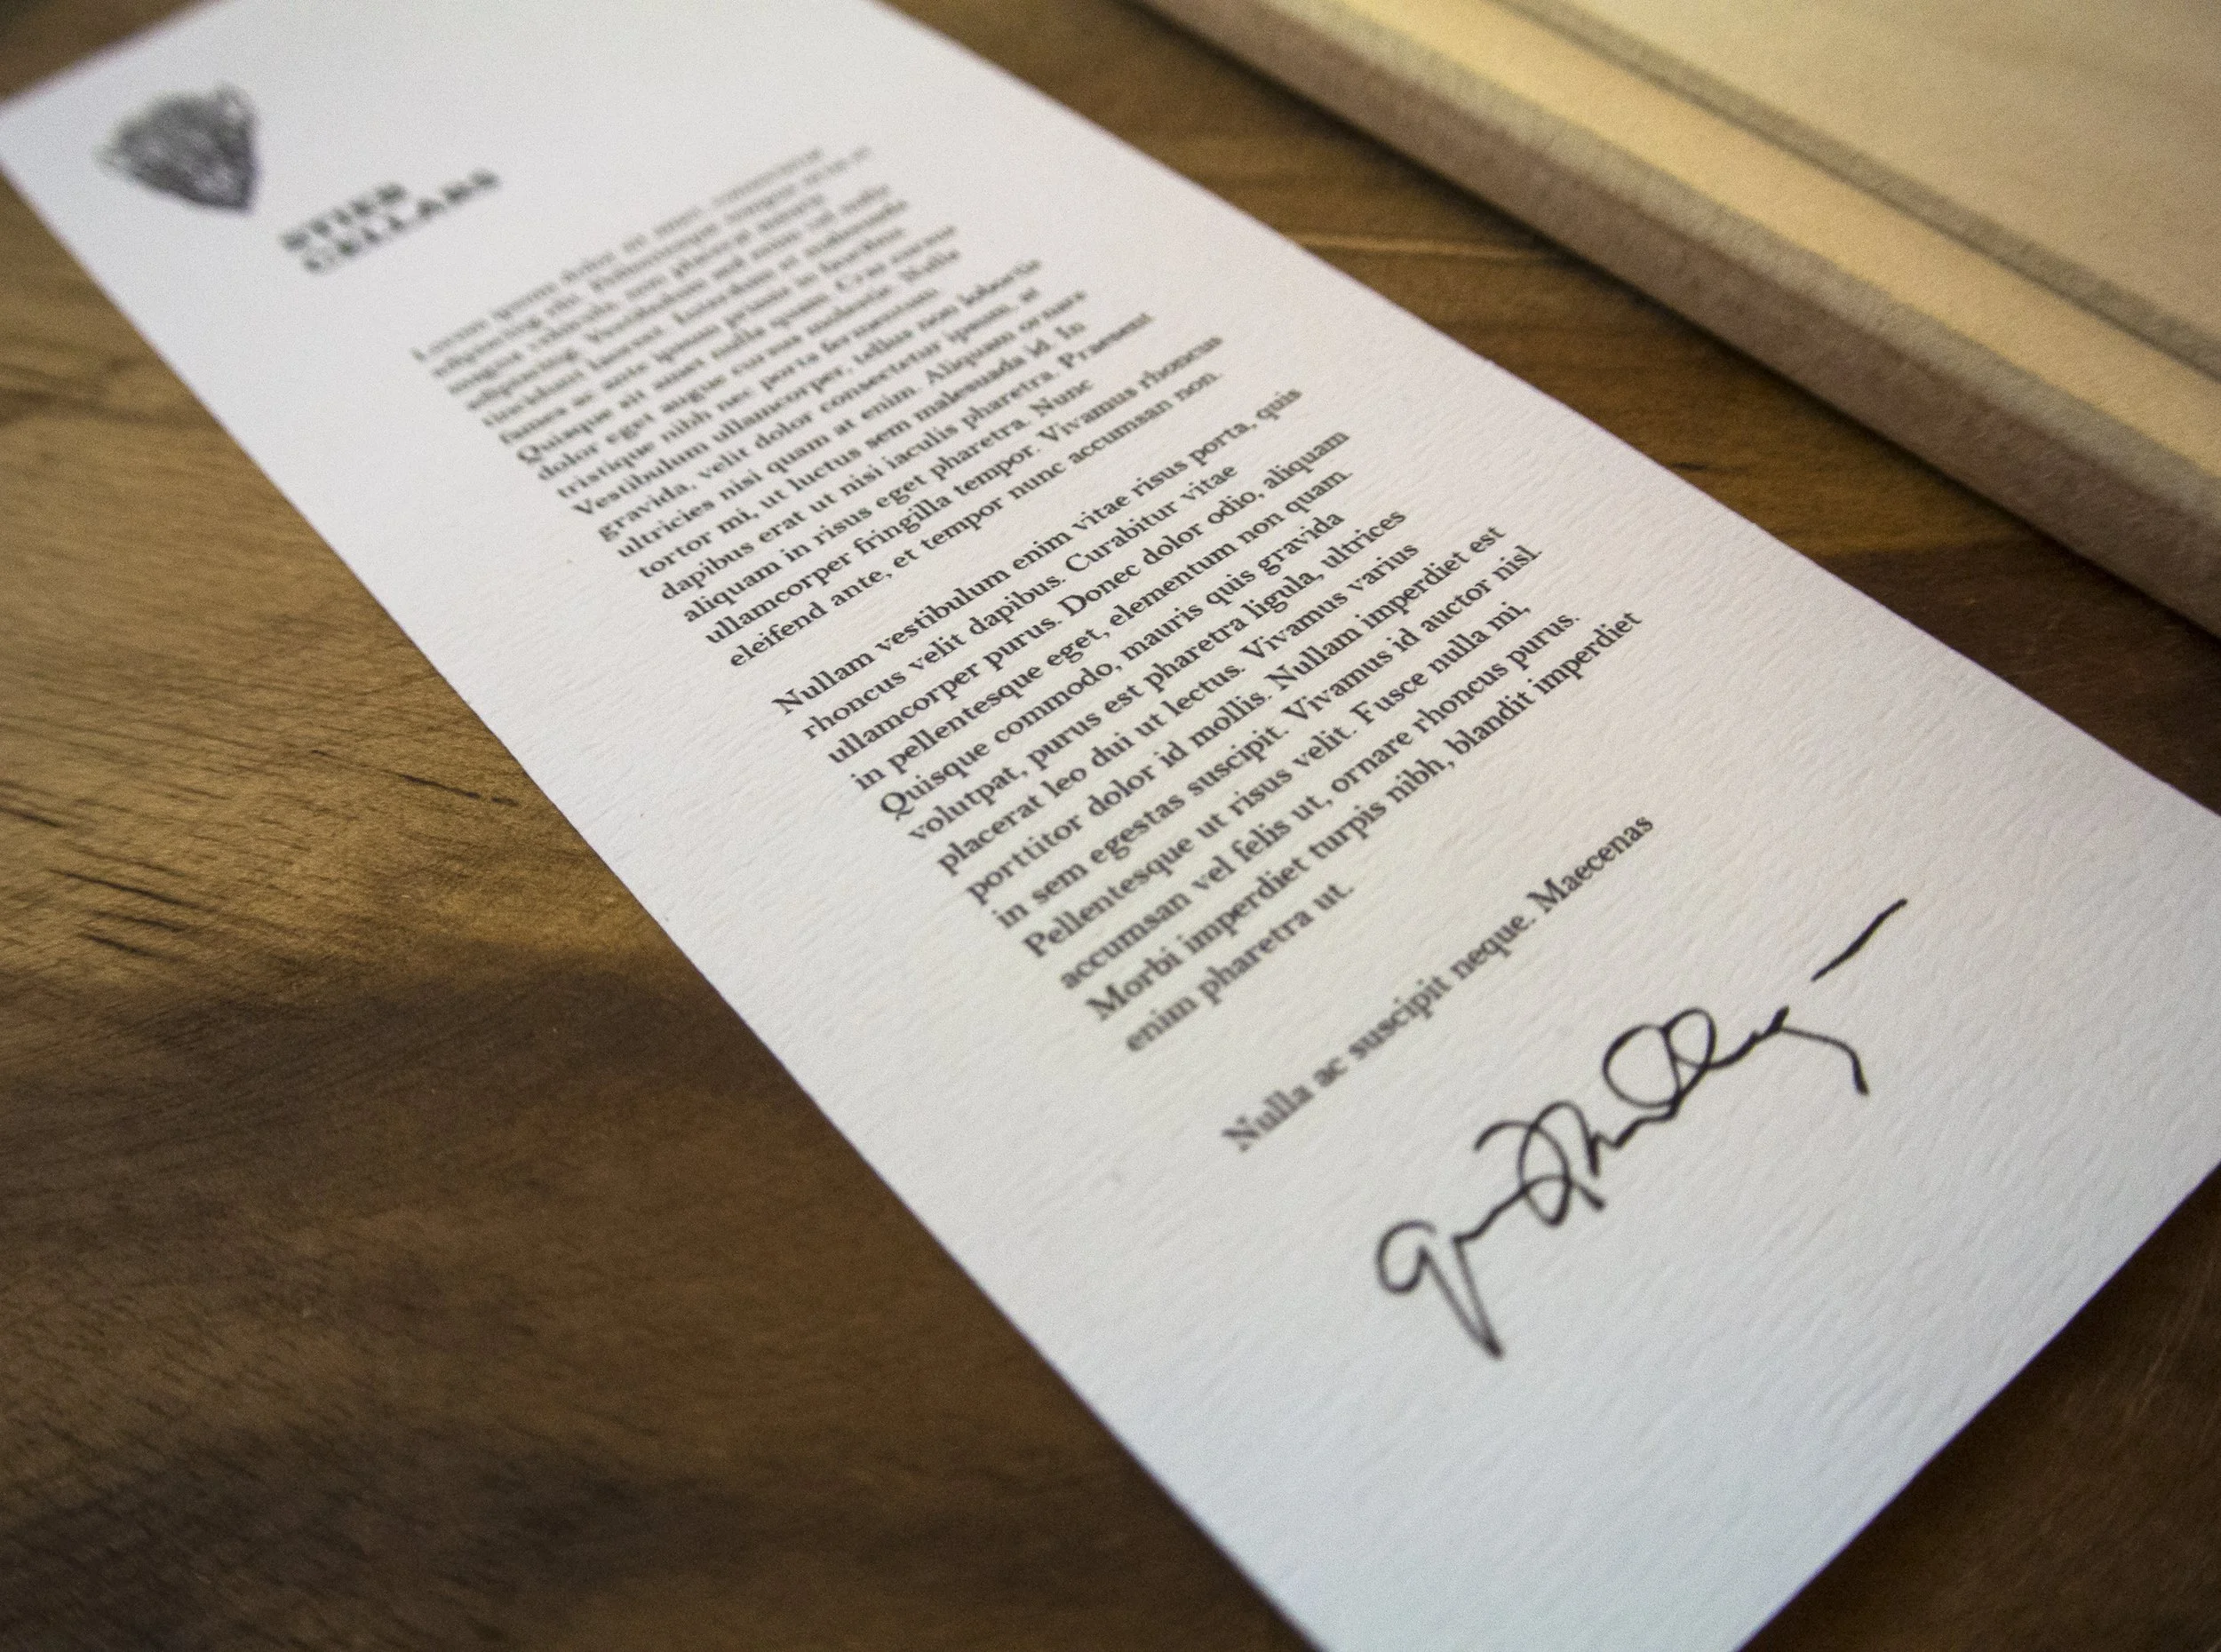 STIER
CELLARS
adipiscing elit. Pellentesque tempor
adipiscing. Vestibulum sed enim id nulla
tincidunt laoreet. Interdum et malesuada
fames ac ante ipsum primis in faucibus
Quisque sit amet nulla quam. Cras cursus
dolor eget augue cursus molestie. Nulla
tristique nibh nec porta fermentum.
Vestibulum ullamcorper, tellus non lobortis
gravida, velit dolor consectetur ipsum, at
ultricies nisi quam at enim. Aliquam ornare
tortor mi, ut luctus sem malesuada id. In
dapibus erat ut nisi iaculis pharetra. Praesent
aliquam in risus eget pharetra. Nunc
ullamcorper fringilla tempor. Vivamus rhoncus
eleifend ante, et tempor nunc accumsan non.
Nullam vestibulum enim vitae risus porta, quis
rhoncus velit dapibus. Curabitur vitae
ullamcorper purus. Donec dolor odio, aliquam
in pellentesque eget, elementum non quam.
Quisque commodo, mauris quis gravida
volutpat, purus est pharetra ligula, ultrices
placerat leo dui ut lectus. Vivamus varius
porttitor dolor id mollis. Nullam imperdiet est
in sem egestas suscipit. Vivamus id auctor nisl.
Pellentesque ut risus velit. Fusce nulla mi,
accumsan vel felis ut, ornare rhoncus purus.
Morbi imperdiet turpis nibh, blandit imperdiet
enim pharetra ut.
Nulla ac suscipit neque. Maecenas